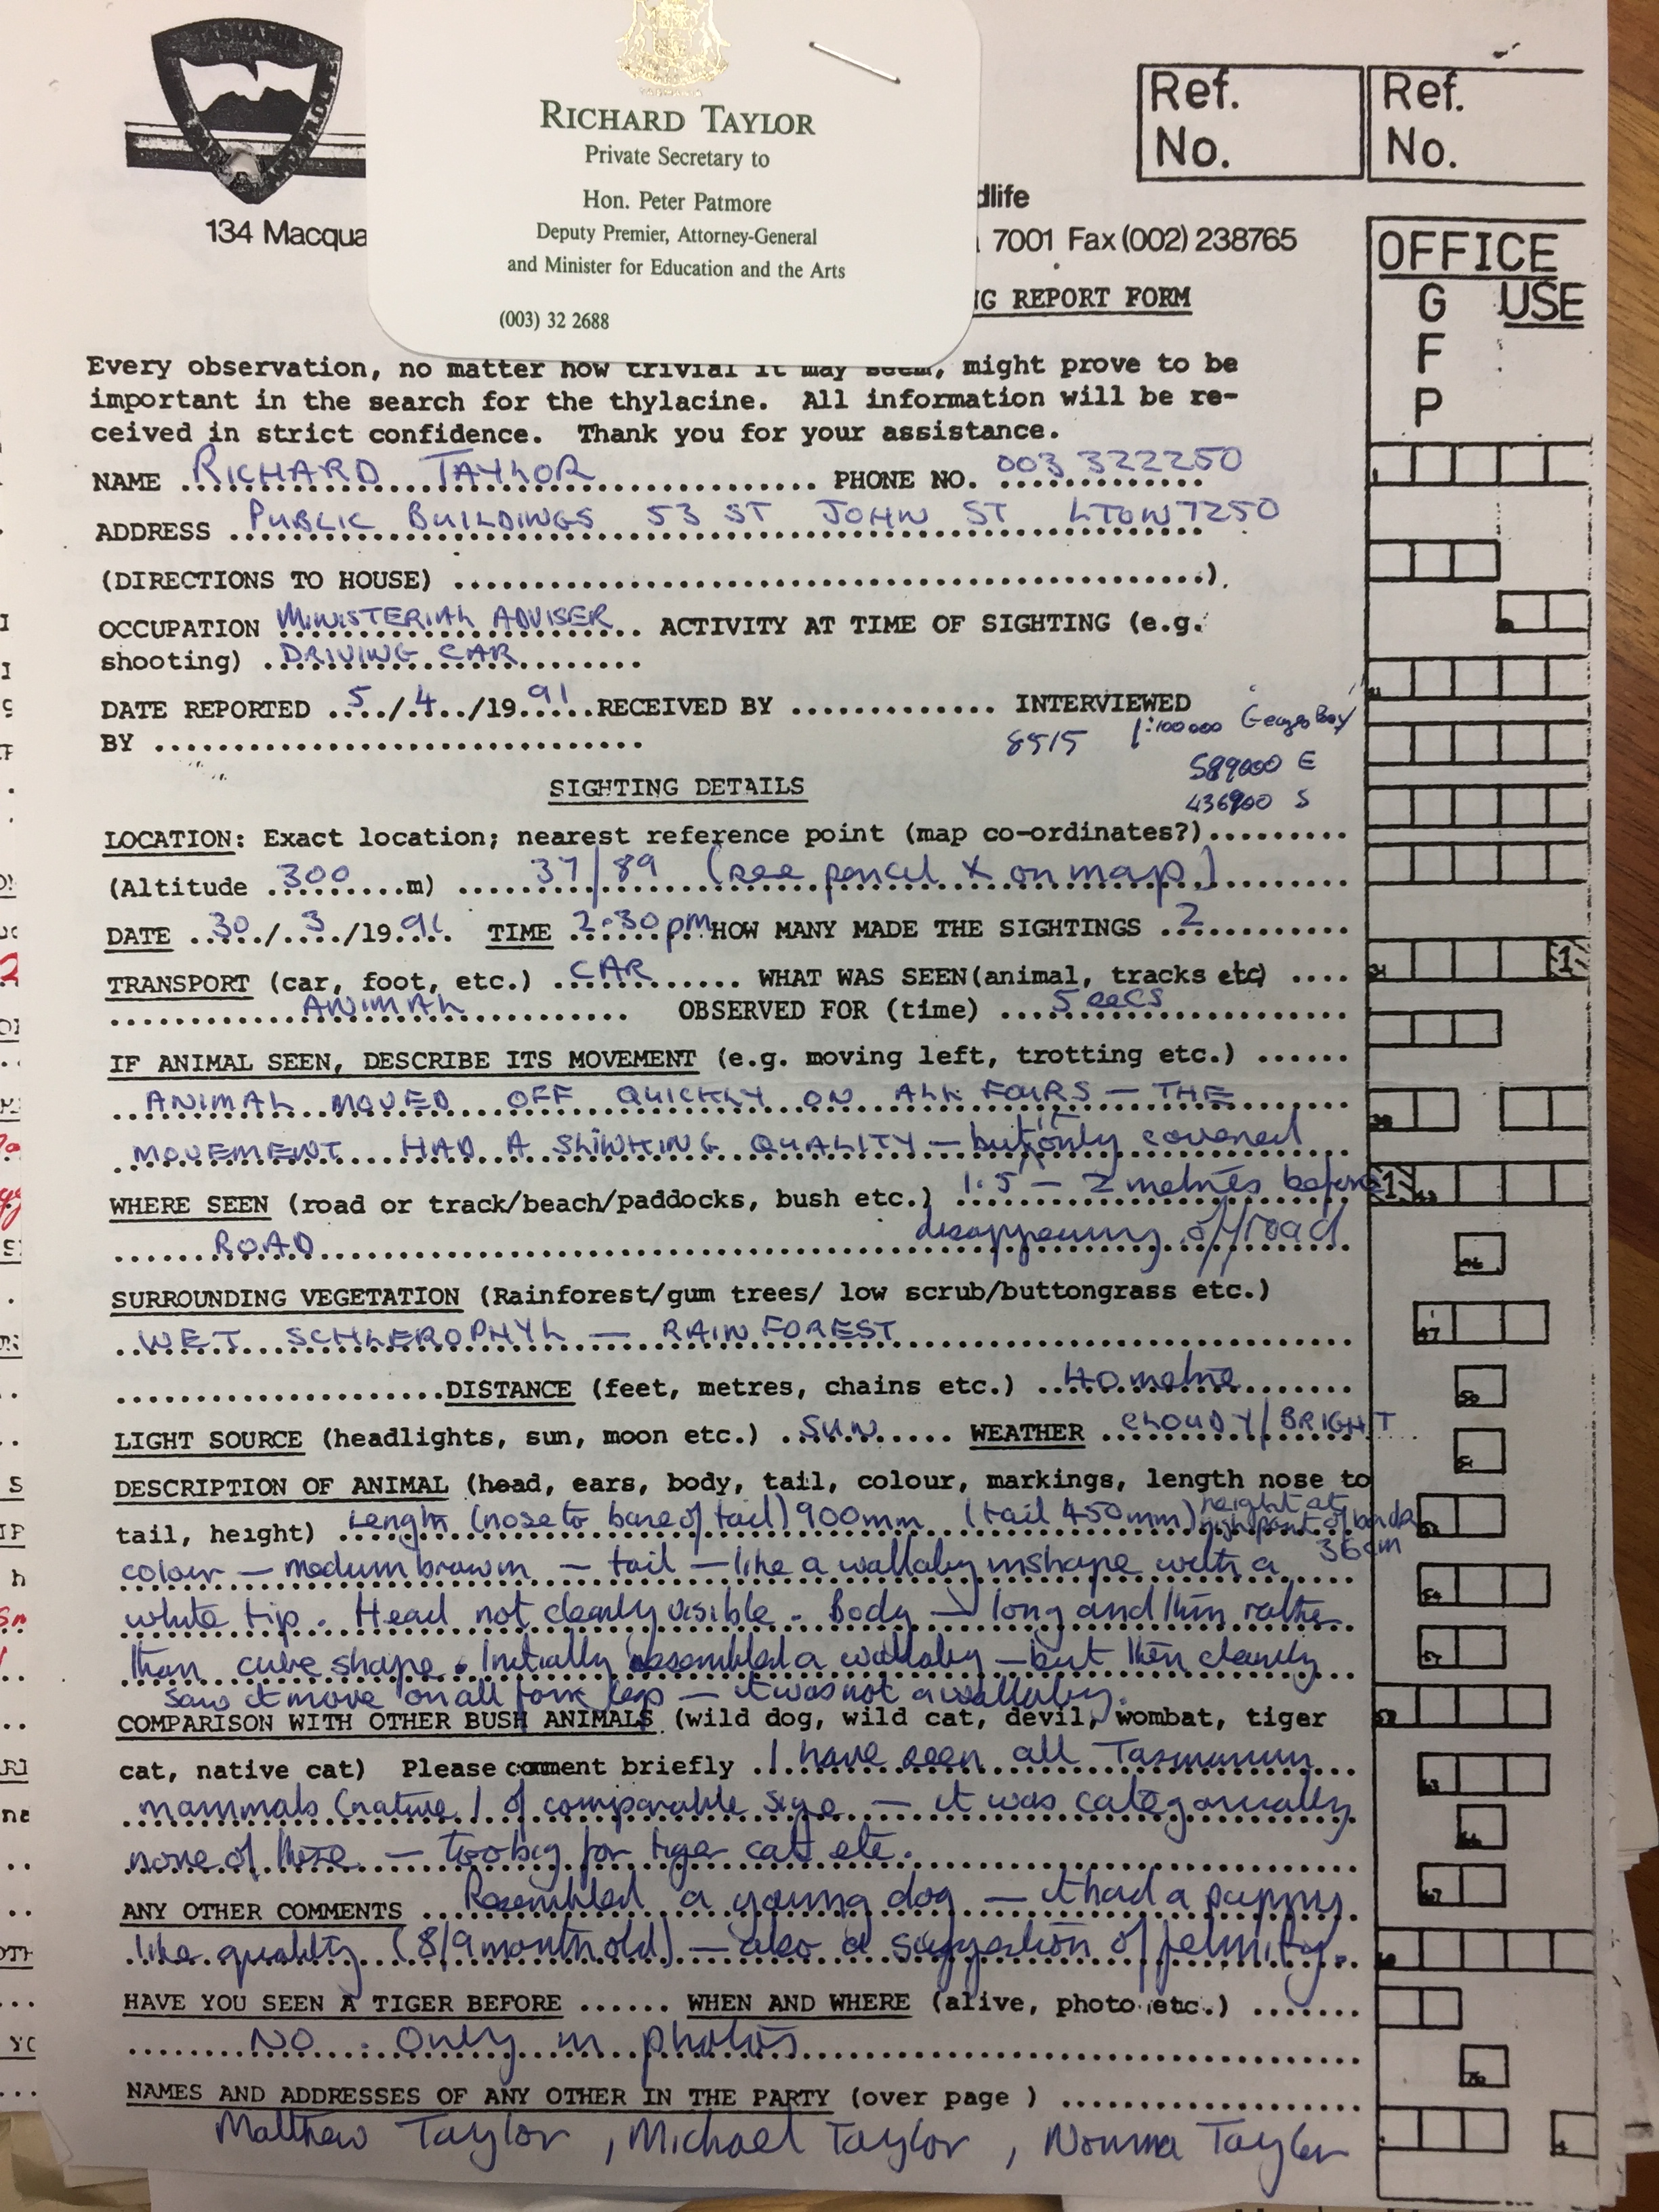 TASMANIA
RICHARD TAYLOR
Private Secretary to
Hon. Peter Patmore
Deputy Premier, Attorney-General
and Minister for Education and the Arts
(003) 32 2688
Ref.
No.
Ref.
No.
dlife
134 Macqua
7001 Fax (002) 238765
G REPORT FORM
OFFICE
USE
G
F
P
Every observation, no matter how trivial it may seem, might prove to be
important in the search for the thylacine. All information will be re-
ceived in strict confidence. Thank you for your assistance.
NAME RICHARD TAYLOR PHONE NO. 003 322250
ADDRESS PUBLIC BUILDINGS 53 ST JOHN ST LTON 7250
(DIRECTIONS TO HOUSE) ........................................)
OCCUPATION MINISTERIAL ADVISER ACTIVITY AT TIME OF SIGHTING (e.g.
shooting) DRIVING CAR
DATE REPORTED 5/4/1991 RECEIVED BY ............. INTERVIEWED
BY ..............................
8515 1:100000 Georges Bay
589000 E
436900 S
SIGHTING DETAILS
LOCATION: Exact location; nearest reference point (map co-ordinates?).........
(Altitude 300 m) 37/89 (see pencil X on map)
DATE 30/3/1991 TIME 2.30pm HOW MANY MADE THE SIGHTINGS 2
TRANSPORT (car, foot, etc.) CAR WHAT WAS SEEN (animal, tracks etc) ....
ANIMAL OBSERVED FOR (time) 5 secs
IF ANIMAL SEEN, DESCRIBE ITS MOVEMENT (e.g. moving left, trotting etc.) ......
ANIMAL MOVED OFF QUICKLY ON ALL FOURS — THE
MOVEMENT HAD A SLINKING QUALITY — but it only covered
WHERE SEEN (road or track/beach/paddocks, bush etc.) 1.5 — 2 metres before
ROAD disappearing off road
SURROUNDING VEGETATION (Rainforest/gum trees/ low scrub/buttongrass etc.)
WET SCHLEROPHYL — RAIN FOREST
DISTANCE (feet, metres, chains etc.) 40 metre
LIGHT SOURCE (headlights, sun, moon etc.) SUN WEATHER CLOUDY/BRIGHT
DESCRIPTION OF ANIMAL (head, ears, body, tail, colour, markings, length nose to
tail, height) Length (nose to base of tail) 900mm (tail 450mm) height at
high point of 36cm
colour — medium brown — tail — like a wallaby in shape with a
white tip. Head not clearly visible. Body → long and thin rather
than cube shape. Initially resembled a wallaby — but then clearly
saw it move on all four legs — it was not a wallaby.
COMPARISON WITH OTHER BUSH ANIMALS (wild dog, wild cat, devil, wombat, tiger
cat, native cat) Please comment briefly I have seen all Tasmanian
mammals (native) of comparable size — it was categorically
none of these — too big for tiger cat etc.
ANY OTHER COMMENTS Resembled a young dog — it had a puppy
like quality (8/9 months old) — also a suggestion of felinity.
HAVE YOU SEEN A TIGER BEFORE ...... WHEN AND WHERE (alive, photo etc.) .......
NO. Only in photos
NAMES AND ADDRESSES OF ANY OTHER IN THE PARTY (over page ) .................
Matthew Taylor, Michael Taylor, Norma Taylor